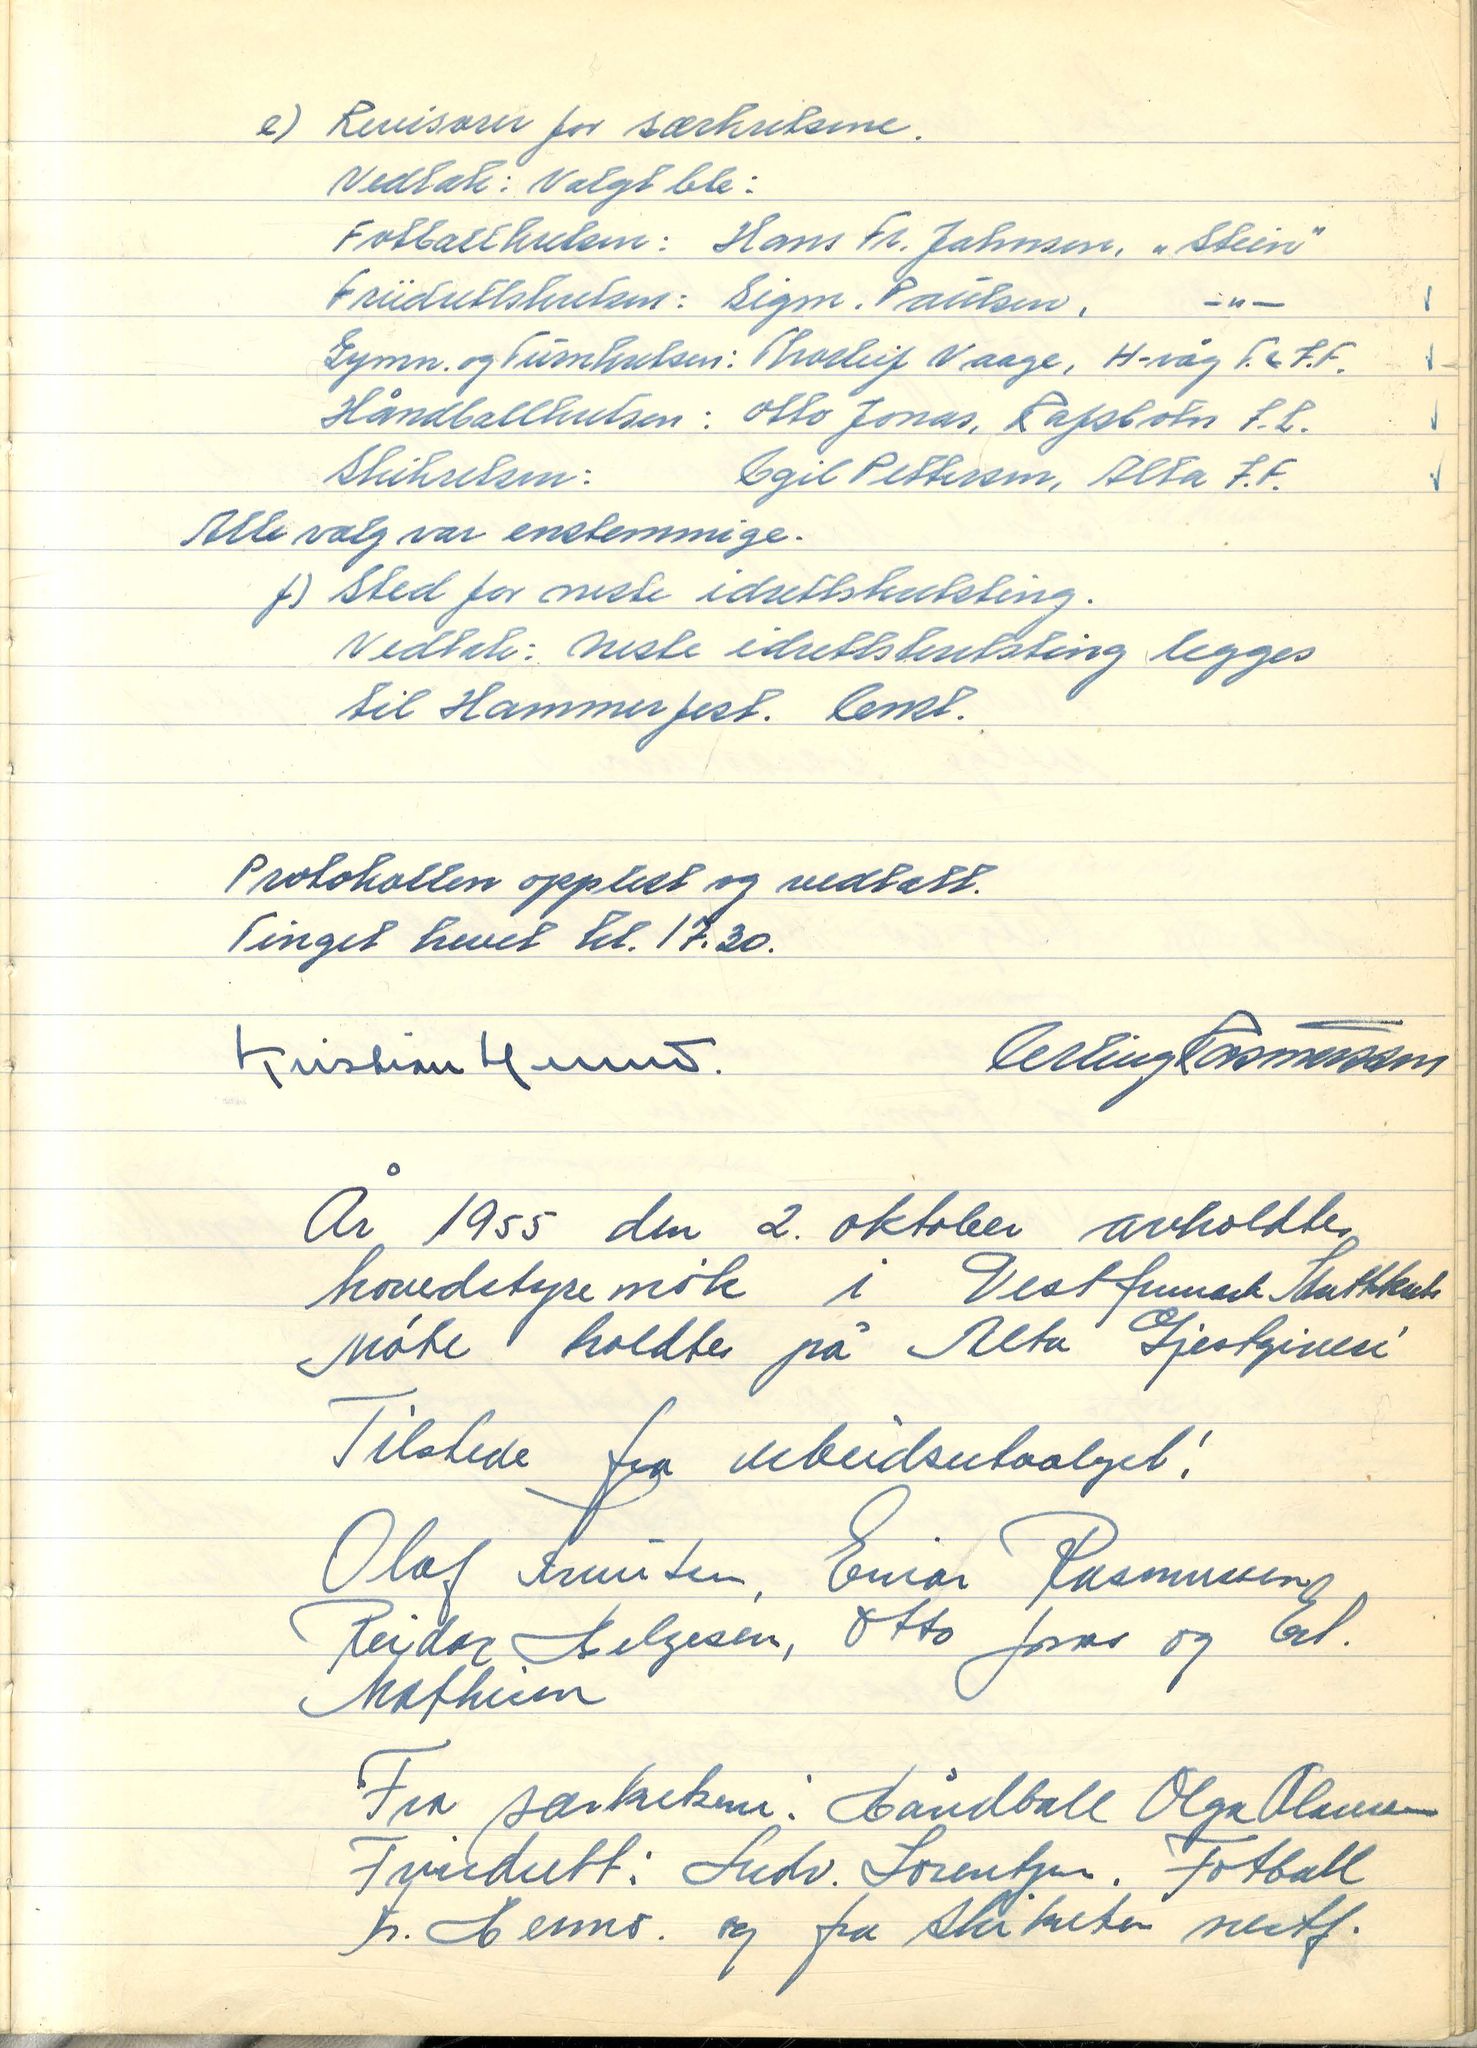 e) Revisorer for særkretsene.
Vedtak: Valgt ble:
Fotballkretsen: Hans Fr. Johnsen, „Stein"
Friidrettskretsen: Sigm. Paulsen, -"-
Gymn. og Turnkretsen: Thorleif Vaage, H-våg T. & I.F.
Håndballkretsen: Otto Jonas, Rafsbotn I.L.
Skikretsen: Egil Pettersen, Alta I.F.
Alle valg var enstemmige.
f) Sted for neste idrettskretsting.
Vedtak: Neste idrettskretsting legges
til Hammerfest. Enst.
Protokollen opplest og vedtatt.
Tinget hevet kl. 17.30.
Kristian Hennø. Erling Rasmussen
År 1955 den 2. oktober avholdtes
hovedstyremøte i Vestfinnmark Idrettskrets
Møte holdtes på Alta Gjestgiveri
Tilstede fra arbeidsutvalget:
Olaf Knutsen, Einar Rasmussen,
Reidar Helgesen, Otto Jonas og Erl.
Mathisen
Fra særkretsene: Håndball Olga Olaussen
Friidrett: Ludv. Lorentzen. Fotball
Kr. Hennø. og fra skikretsen nestf.